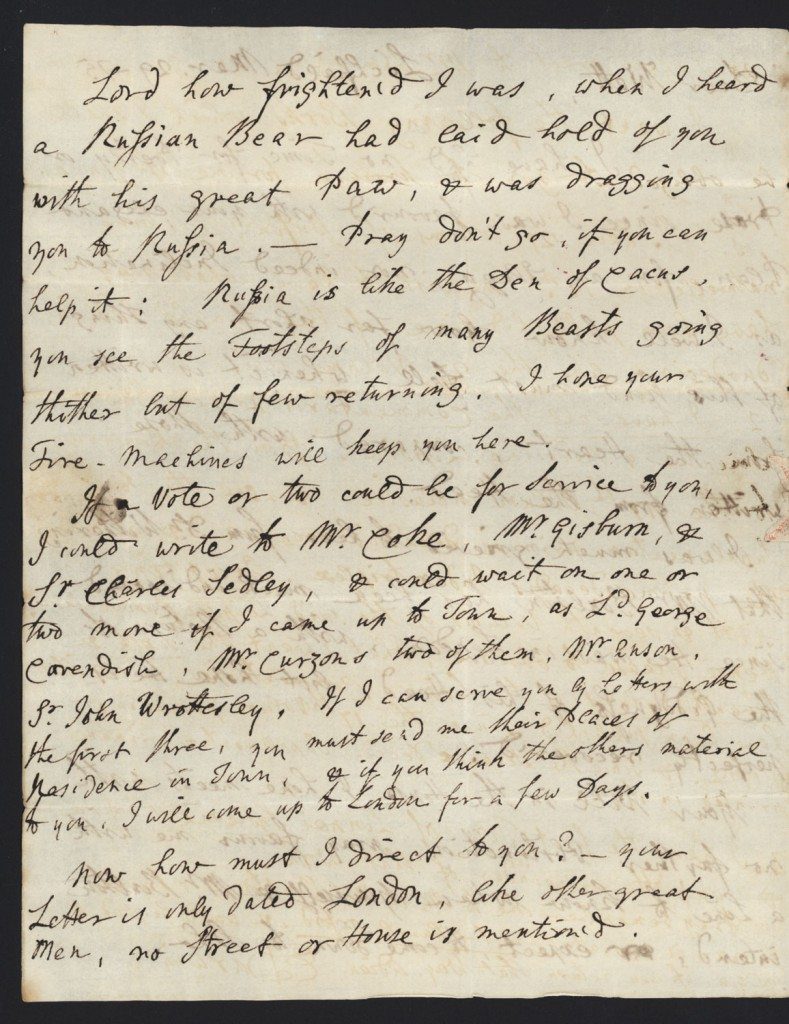 Lord how frighten'd I was, when I heard
a Russian Bear had laid hold of you
with his great Paw, & was dragging
you to Russia. — Pray don't go, if you can
help it: Russia is like the Den of Cacus,
you see the Footsteps of many Beasts going
thither but of few returning. I hope your
Fire-Machines will keep you here.
If a Vote or two could be for Service to you,
I could write to Mr. Coke, Mr. Gisburn, &
Sr. Charles Sedley, & could wait on one or
two more if I came up to Town, as Ld. George
Cavendish, Mr. Curzons two of them, Mr. Anson,
Sr. John Wrottesley. If I can serve you by Letters with
the first three, you must send me their Places of
Residence in Town, & if you think the others material
to you, I will come up to London for a few Days.
Now how must I direct to you? — your
Letter is only dated London, like other great
Men, no Street or House is mention'd.